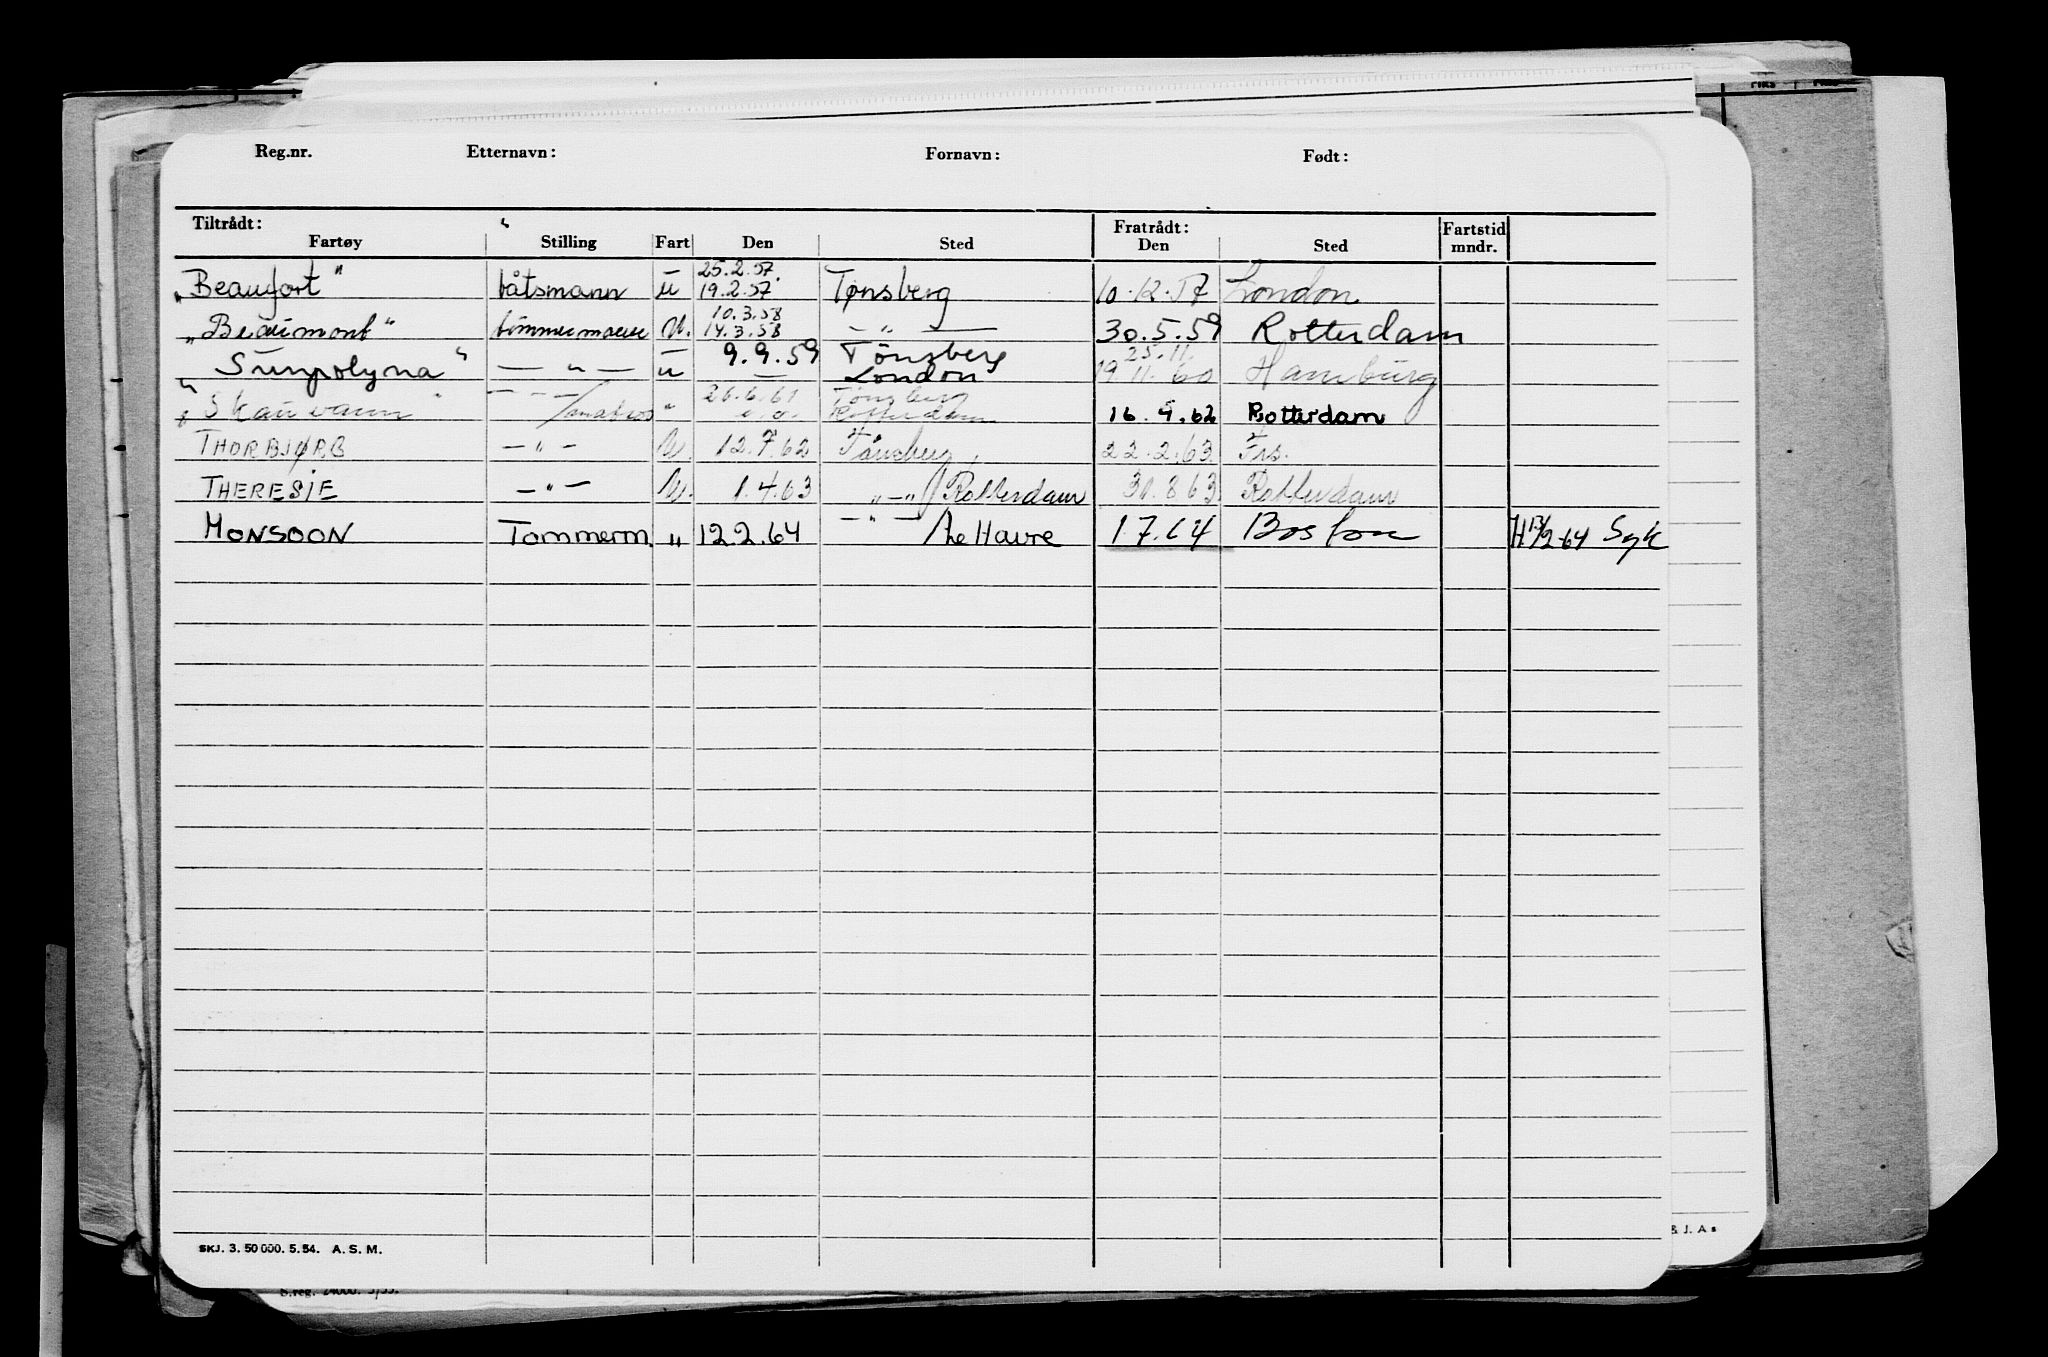 Reg.nr. Etternavn: Fornavn: Født:
Tiltrådt: Fratrådt: Fartstid
Fartøy Stilling Fart Den Sted Den Sted mndr.
25.2.57.
"Beaufort" båtsmann u 19.2.57 Tønsberg 10.12.57 London
10.3.58
"Beaumont" tømmermann U. 14.3.58 — " — 30.5.59 Rotterdam
25.11.
"Sunpolyna" — " — u 9.9.59 Tönsberg 19 11. 60 Hamburg
— London
26.6.61 Tönsberg
"Skauvann" — " — /matros " Rotterdam 16.4.62 Rotterdam
THORBJØRG — " — U. 12.7.62 Tönsberg 22.2.63. Frs.
THERESIE — " — U. 1.4.63 " — " / Rotterdam 31.8.63. Rotterdam
MONSOON Tømmerm. " 12 2.64 — " — /Le Havre 1.7.64 Boston H 13/2-64 Syk
SKJ. 3. 50 000. 5.54. A. S. M.
& J. As
S.reg. 24000. 5/55.